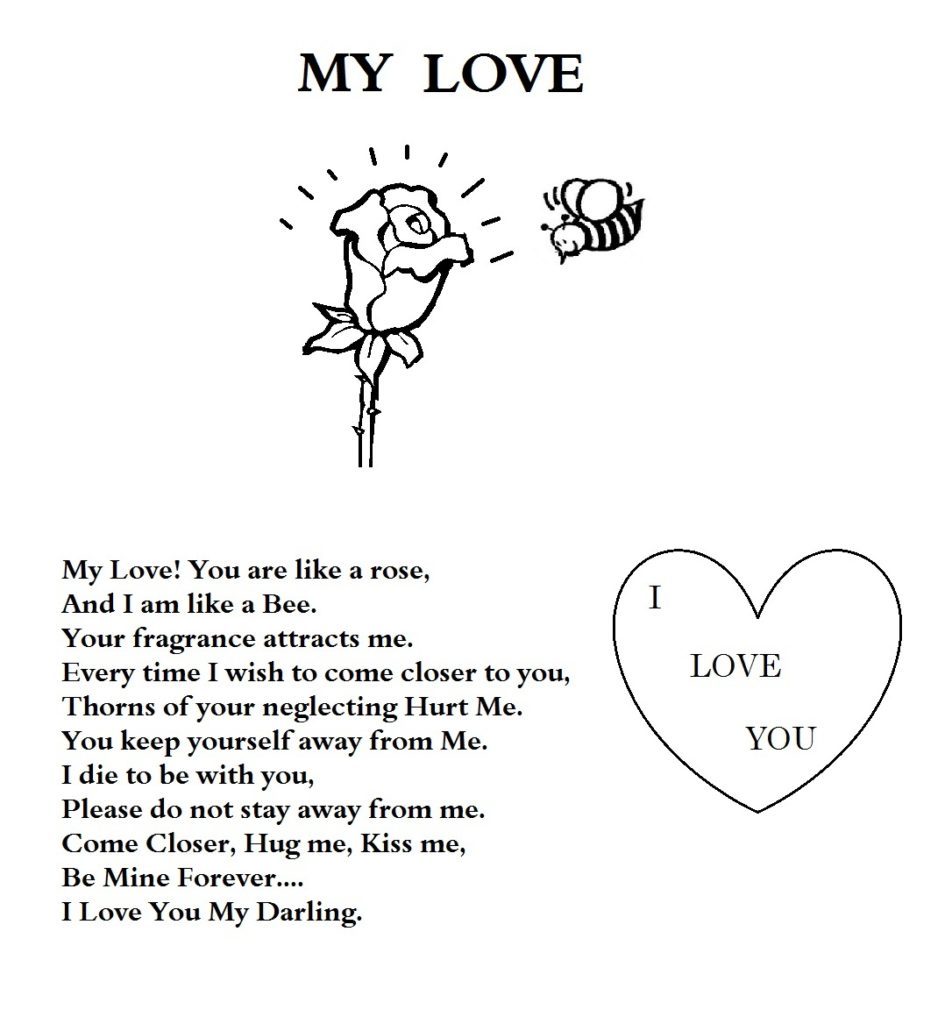 MY LOVE
My Love! You are like a rose,
And I am like a Bee.
Your fragrance attracts me.
Every time I wish to come closer to you,
Thorns of your neglecting Hurt Me.
You keep yourself away from Me.
I die to be with you,
Please do not stay away from me.
Come Closer, Hug me, Kiss me,
Be Mine Forever....
I Love You My Darling.
I
LOVE
YOU